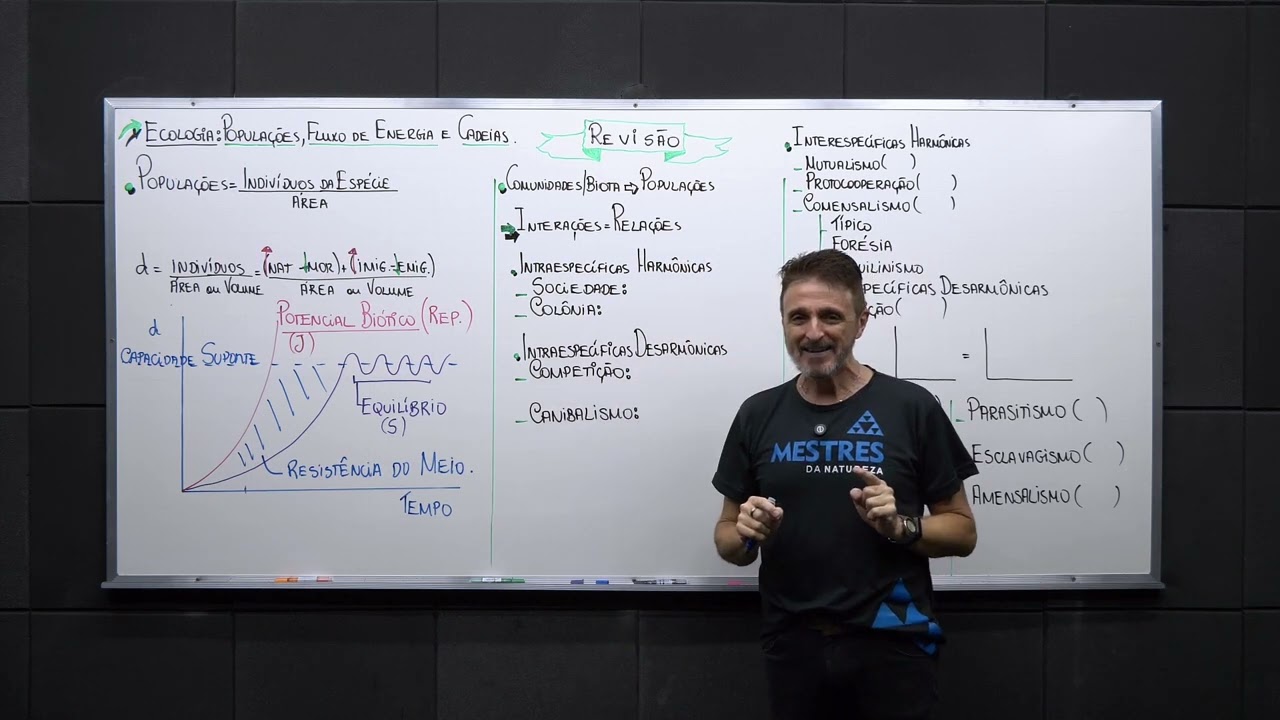 Ecologia: Populações, Fluxo de Energia e Cadeias.
Revisão
Populações = Indivíduos da Espécie
Área
d = Indivíduos = (Nat - Mor) + (Imig. - Emig.)
Área ou Volume Área ou Volume
d
Potencial Biótico (Rep.)
(J)
Capacidade Suporte
Equilíbrio
(S)
Resistência do Meio.
Tempo
Comunidades/Biota ⇨ Populações
Interações = Relações
Intraespecíficas Harmônicas
- Sociedade:
- Colônia:
Intraespecíficas Desarmônicas
- Competição:
- Canibalismo:
Interespecíficas Harmônicas
- Mutualismo ( )
- Protocooperação ( )
- Comensalismo ( )
Típico
Forésia
Desarmônicas
( )
=
Parasitismo ( )
Esclavagismo ( )
Amensalismo ( )
MESTRES
DA NATUREZA